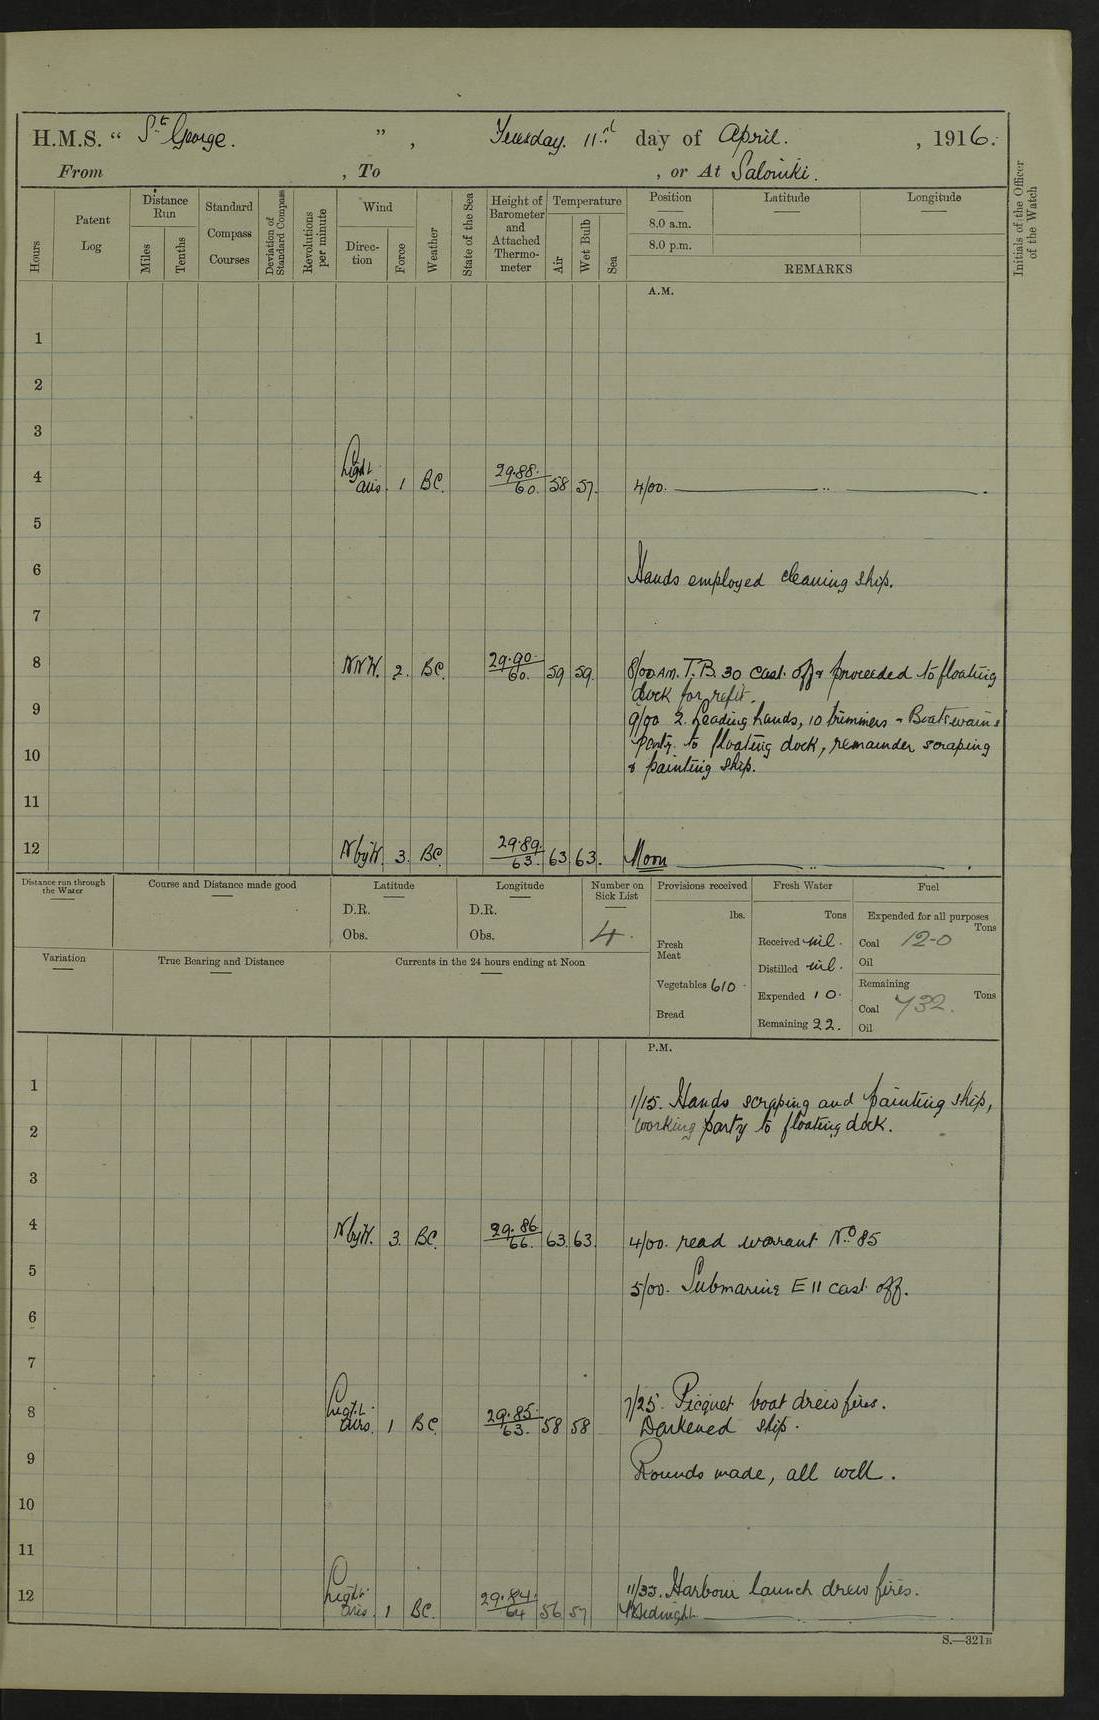 H.M.S. “ St George. ”, Tuesday. 11th day of April. , 1916.
From , To , or At Salonika.
Hours
Patent Log
Distance Run
Miles
Tenths
Standard Compass Courses
Deviation of Standard Compass
Revolutions per minute
Wind
Direction
Force
Weather
State of the Sea
Height of Barometer and Attached Thermometer
Temperature
Air
Wet Bulb
Sea
Position
Latitude
Longitude
8.0 a.m.
8.0 p.m.
REMARKS
Initials of the Officer of the Watch
A.M.
1
2
3
4 Light airs. 1 BC. 29.88. 60. 58 57. 4/00. .. .
5
6 Hands employed cleaning ship.
7
8 NNW. 2. BC. 29.90. 60. 59 59. 8/00 AM. T.B. 30 cast off & proceeded to floating
dock for refit.
9 9/00 2 Leading hands, 10 trimmers & Boatswains
party to floating dock, remainder scraping
10 & painting ship.
11
12 NbyW. 3. BC. 29.89. 63. 63 63. Noon .. .
Distance run through the Water
Course and Distance made good
Latitude
D.R.
Obs.
Longitude
D.R.
Obs.
Number on Sick List
4.
Provisions received
lbs.
Fresh Meat
Vegetables 610
Bread
Fresh Water
Tons
Received nil.
Distilled nil.
Expended 10.
Remaining 22.
Fuel
Expended for all purposes
Tons
Coal 12-0
Oil
Remaining
Tons
Coal 732.
Oil
Variation
True Bearing and Distance
Currents in the 24 hours ending at Noon
P.M.
1 1/15. Hands scraping and painting ship,
2 working party to floating dock.
3
4 NbyW. 3. BC. 29.86 66. 63. 63. 4/00. read warrant No 85
5 5/00. Submarine E 11 cast off.
6
7
8 Light airs. 1 BC. 29.85. 63. 58 58 7/25. Picquet boat drew fires.
Darkened ship.
9 Rounds made, all well.
10
11
12 Light airs. 1 BC. 29.84. 64 56 57 11/35. Harbour launch drew fires.
Midnight
S.—321B